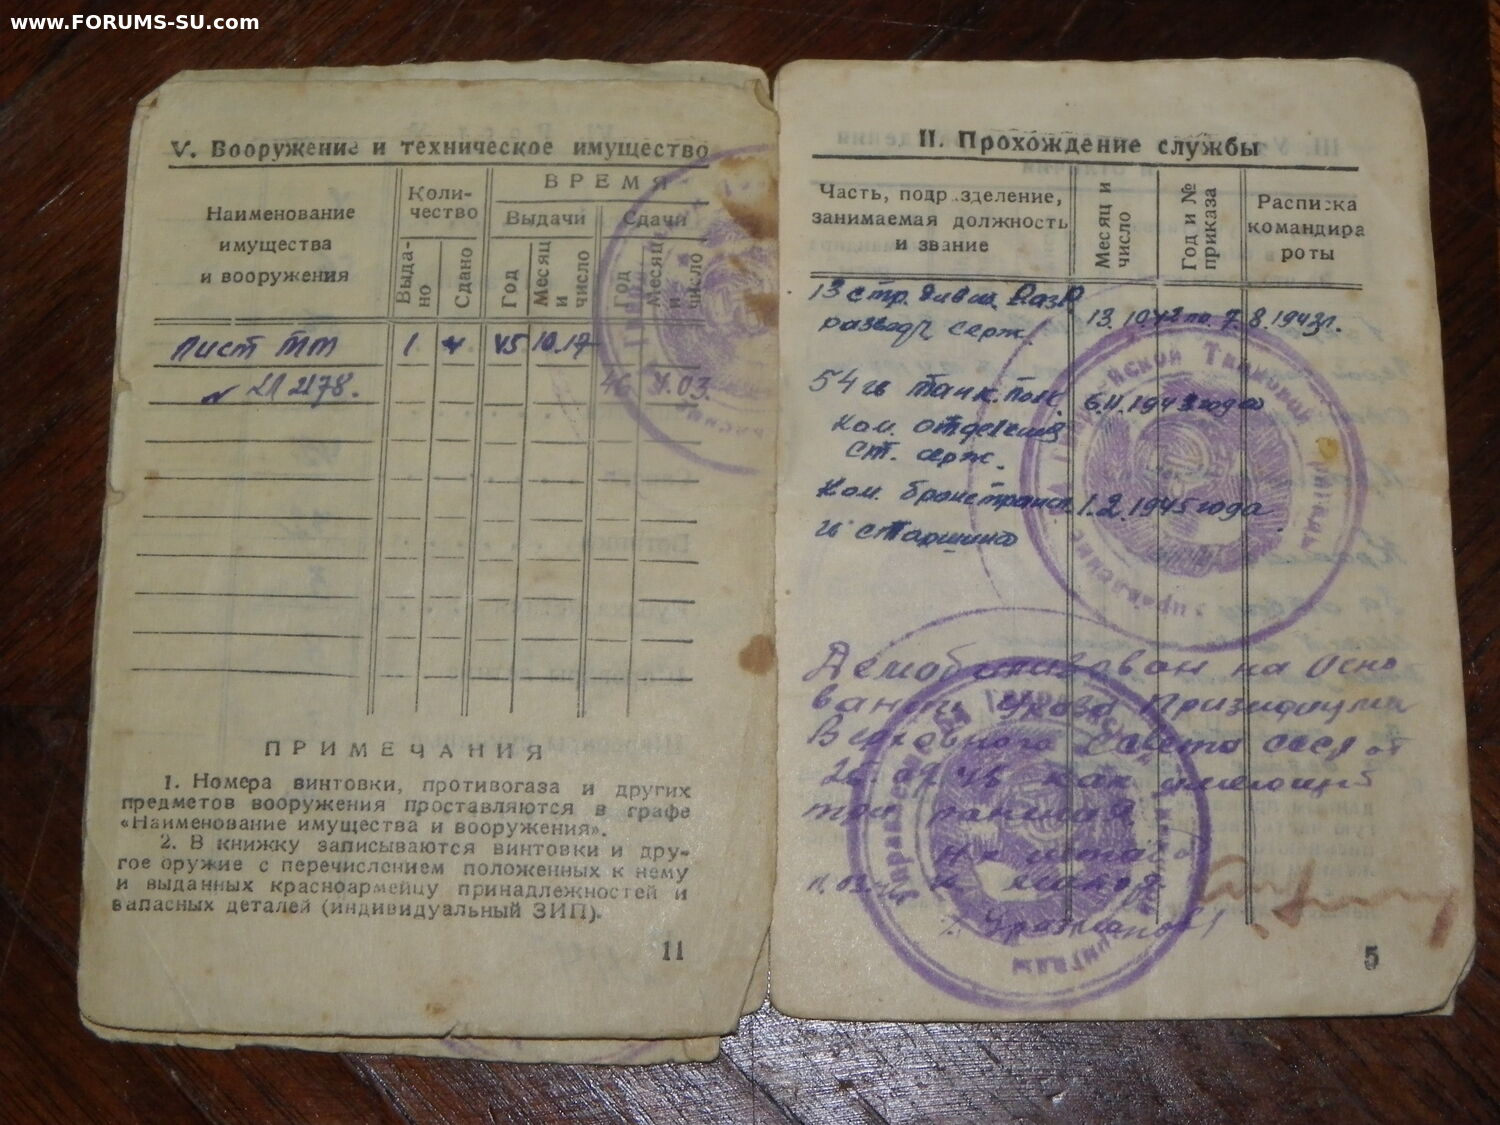 www.FORUMS-SU.com
V. Вооружение и техническое имущество
Наименование
имущества
и вооружения
Коли-
чество
ВРЕМЯ
Выдачи
Сдачи
Выда-
но
Сдано
Год
Месяц
и
число
Год
Месяц
и
число
пист ТТ 1 45 10.17
2178. 46 03.
ПРИМЕЧАНИЯ
1. Номера винтовки, противогаза и других
предметов вооружения проставляются в графе
«Наименование имущества и вооружения».
2. В книжку записываются винтовки и дру-
гое оружие с перечислением положенных к нему
и выданных красноармейцу принадлежностей и
запасных деталей (индивидуальный ЗИП).
11
II. Прохождение службы
Часть, подр зделение,
занимаемая должность
и звание
Месяц и
число
Год и №
приказа
Расписка
командира
роты
13 стр. дивиз.
развед серж. 13.10.42 по 7.8.1943г.
54 гв танк. полк. 6.11.1943 года
Ком. отделения
ст. серж.
Ком. бронетрансп 1.2.1945 года
и старшина
Демобилизован на осно
вании указа Призидиума
Верховного Совета СССР от
как имеющий
три ранения
5